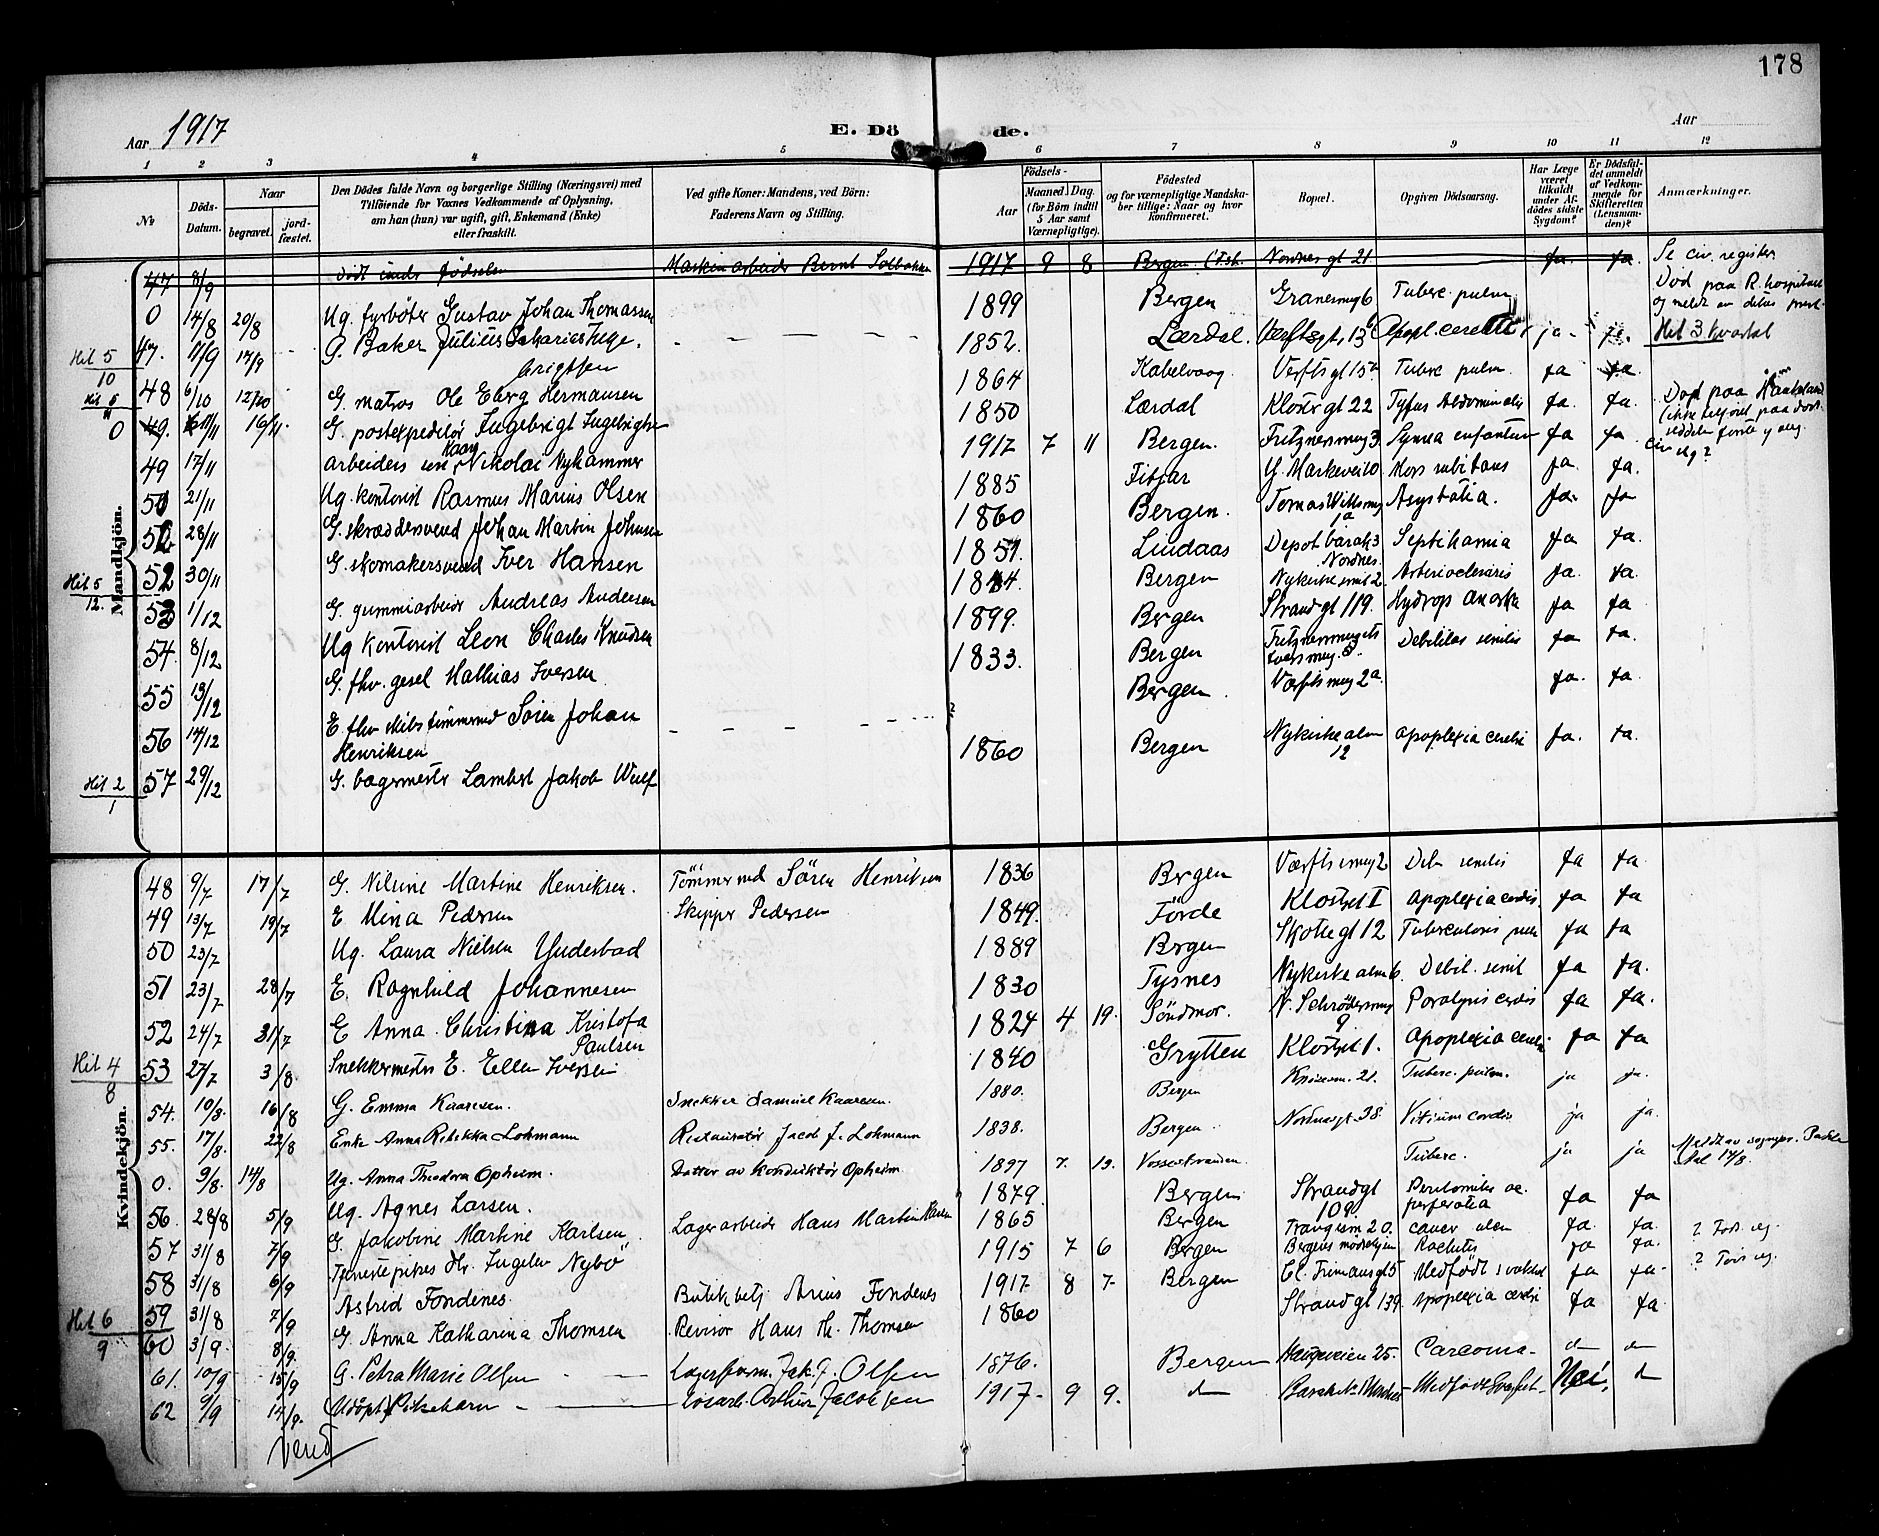 178
Aar 1917
E. Dö de.
Aar
1 2 3 4 5 6 7 8 9 10 11 12
No
Döds-Datum.
Naar
begravet.
jord-fæstet.
Den Dödes fulde Navn og borgerlige Stilling (Næringsvei) med
Tilföiende for Voxnes Vedkommende af Oplysning,
om han (hun) var ugift, gift, Enkemand (Enke)
eller fraskilt.
Ved gifte Koner: Mandens, ved Börn:
Faderens Navn og Stilling.
Födsels-
Aar
Maaned Dag.
(for Börn indtil
5 Aar samt
Værnepligtige).
Födested
og for værnepligtige Mandska-
ber tillige: Naar og hvor
konfirmeret.
Bopæl.
Opgiven Dödsaarsag.
Har Læge
været
tilkaldt
under Af-
dödes sidste
Sygdom?
Er Dödsfal-
det anmeldt
af Vedkom-
mende for
Skifteretten
(Lensman-
den)?
Anmærkninger.
Mandkjön.
47 8/9 dødt under fødselen Maskinarbeider Bernt Solbakken 1917 9 8 Bergen Nordnesgt 21 ja. ja. Se civ. register
0 14/8 20/8 Ug. fyrbøter Gustav Johan Thomassen 1899 Bergen Granesmug 6 Tuberc. pulm Død paa R. hospitalet
Hil 5/10 47. 11/9 17/9 G. Baker Julius Sakarias Helge. 1852. Lærdal. Verftsgt. 13 Apopl. cerebri ja. ja. Hit 3 kvartal
48 6/10 12/10 G. matros Ole Eberg Hermansen 1864 Kabelvaag Verftsgt 15a Tuberc pulm. ja ja
0 49. 11/11 16/11 G. postexpeditør Ingebrigt Ingebrigtsen 1850 Lærdal Klostergt 22 Tyfus Abdominalis ja. ja. Død paa Haukeland
49 17/11 arbeiders søn Kaare Nikolai Nyhammer 1917 7 11 Bergen. Fritznersmug 3 ja ja
50 21/11 Ug. kontorist Rasmus Marius Olsen 1885 Fitjar Mors subitans ja. ja.
51 28/11 G. skræddersvend Johan Martin Johnsen 1860 Bergen. Tomas Wittsmug 1a Asystolia. ja. ja
Hil 5/12. 52 30/11 G. skomakersvend Iver Hansen 1851. Lindaas Depotbarak 3 Nordnes. Septihæmia ja ja.
53 1/12 G. gummiarbeider Andreas Andersen Bergen Nykirkesmit 2 ja. ja.
54. 8/12 Ug kontorist Leon Charles Knudsen 1899. Bergen Strandgt 119. Hydrops ja ja
55 13/12 G. fhv. gesel Mathias Iversen 1833. Bergen Debilitas senilis ja ja.
56 17/12 E fhv skibstømmermd Søren Johan
Henriksen Bergen. Værftsmug 2a. ja. ja.
Hil 2/1 57 29/12 G. bagermester Lambert Jakob Wulf 1860 Bergen Nykirkealm 12 apoplexia cerebri ja. ja.
Kvindekjön.
48 9/7 17/7 G. Nilsine Martine Henriksen. Tömmermd Sören Henriksen 1836 Bergen Værftsmug 2 Deb. senilis ja ja.
49 13/7 19/7 E Mina Pedersen Skipper Pedersen 1849. Förde Klostret I Apoplexia cerebri ja ja
50 23/7 Ug. Laura Nielsen Ynderbad 1889 Bergen Skottegt 12 Tuberculosis pulm ja ja
51 23/7 28/7 E. Ragnhild Johannesen 1830 Tysnes Nykirkealm 6. Debil. senil ja ja.
52 24/7 31/7 E Anna Christina Kristofa
Paulsen 1824 4 19. Söndmør. N. Schrödersmug 9 Paralysis cerebri ja ja.
Hil 4/8 53 27/7 3/8. Snekkermester E. Ellen Iversen 1840 Grytten Klostret 1. Apoplexia cerebri ja ja
54. 10/8. 16/8 G. Emma Kaaresen. Snekker Samuel Kaaresen. 1880. Bergen 21. Tuberc. pulm. ja ja.
55. 17/8. 22/8 Enke Anna Rebekka Lohmann Restauratør Jacob J. Lohmann 1838. Bergen Nordnesgt 38. Vitium cordis ja ja.
0. 9/8. 14/8 Ug. Anna Theodora Opheim. Datter av konduktør Opheim 1897 7. 13. Vossestranden. Tuberc. ja ja
56. 28/8 5/9 Ug. Agnes Larsen. 1879. Bergen Strandgt 109. Peritonitis ac. perforatia ja ja
57 31/8 7/9 G. Jakobine Martine Karlsen, Lagerarbeider Hans Martin Karlsen 1865 Bergen Trangesm 20. cancer ja. ja. ? Fød. reg.
58 31/8 6/9 Tjenestepikes dtr. Ingelev Nybö 1915 7 6 Bergen Bergens mødrehjem Rachitis ja ja.
Hil 6/9 59 31/8 7/9 Astrid Fondenes. Butikbetj Arius Fondenes 1917 8 7. Bergen Cl. Frimansgt 5 Medfödt svakhet ja ja.
60 3/9. 8/9. G. Anna Katharina Thomsen Revisor Hans Th. Thomsen 1860 Strandgt 139. Apoplexia cerebri ja ja.
61. 10/9 15/9 G. Petra Marie Olsen Lagerform. Jak. J. Olsen 1876. Bergen Haugeveien 25. Carcoma
62 9/9 14/9. Udøpt Pikebarn Arthur Jacobsen 1917 9 9. Nei.
Vend